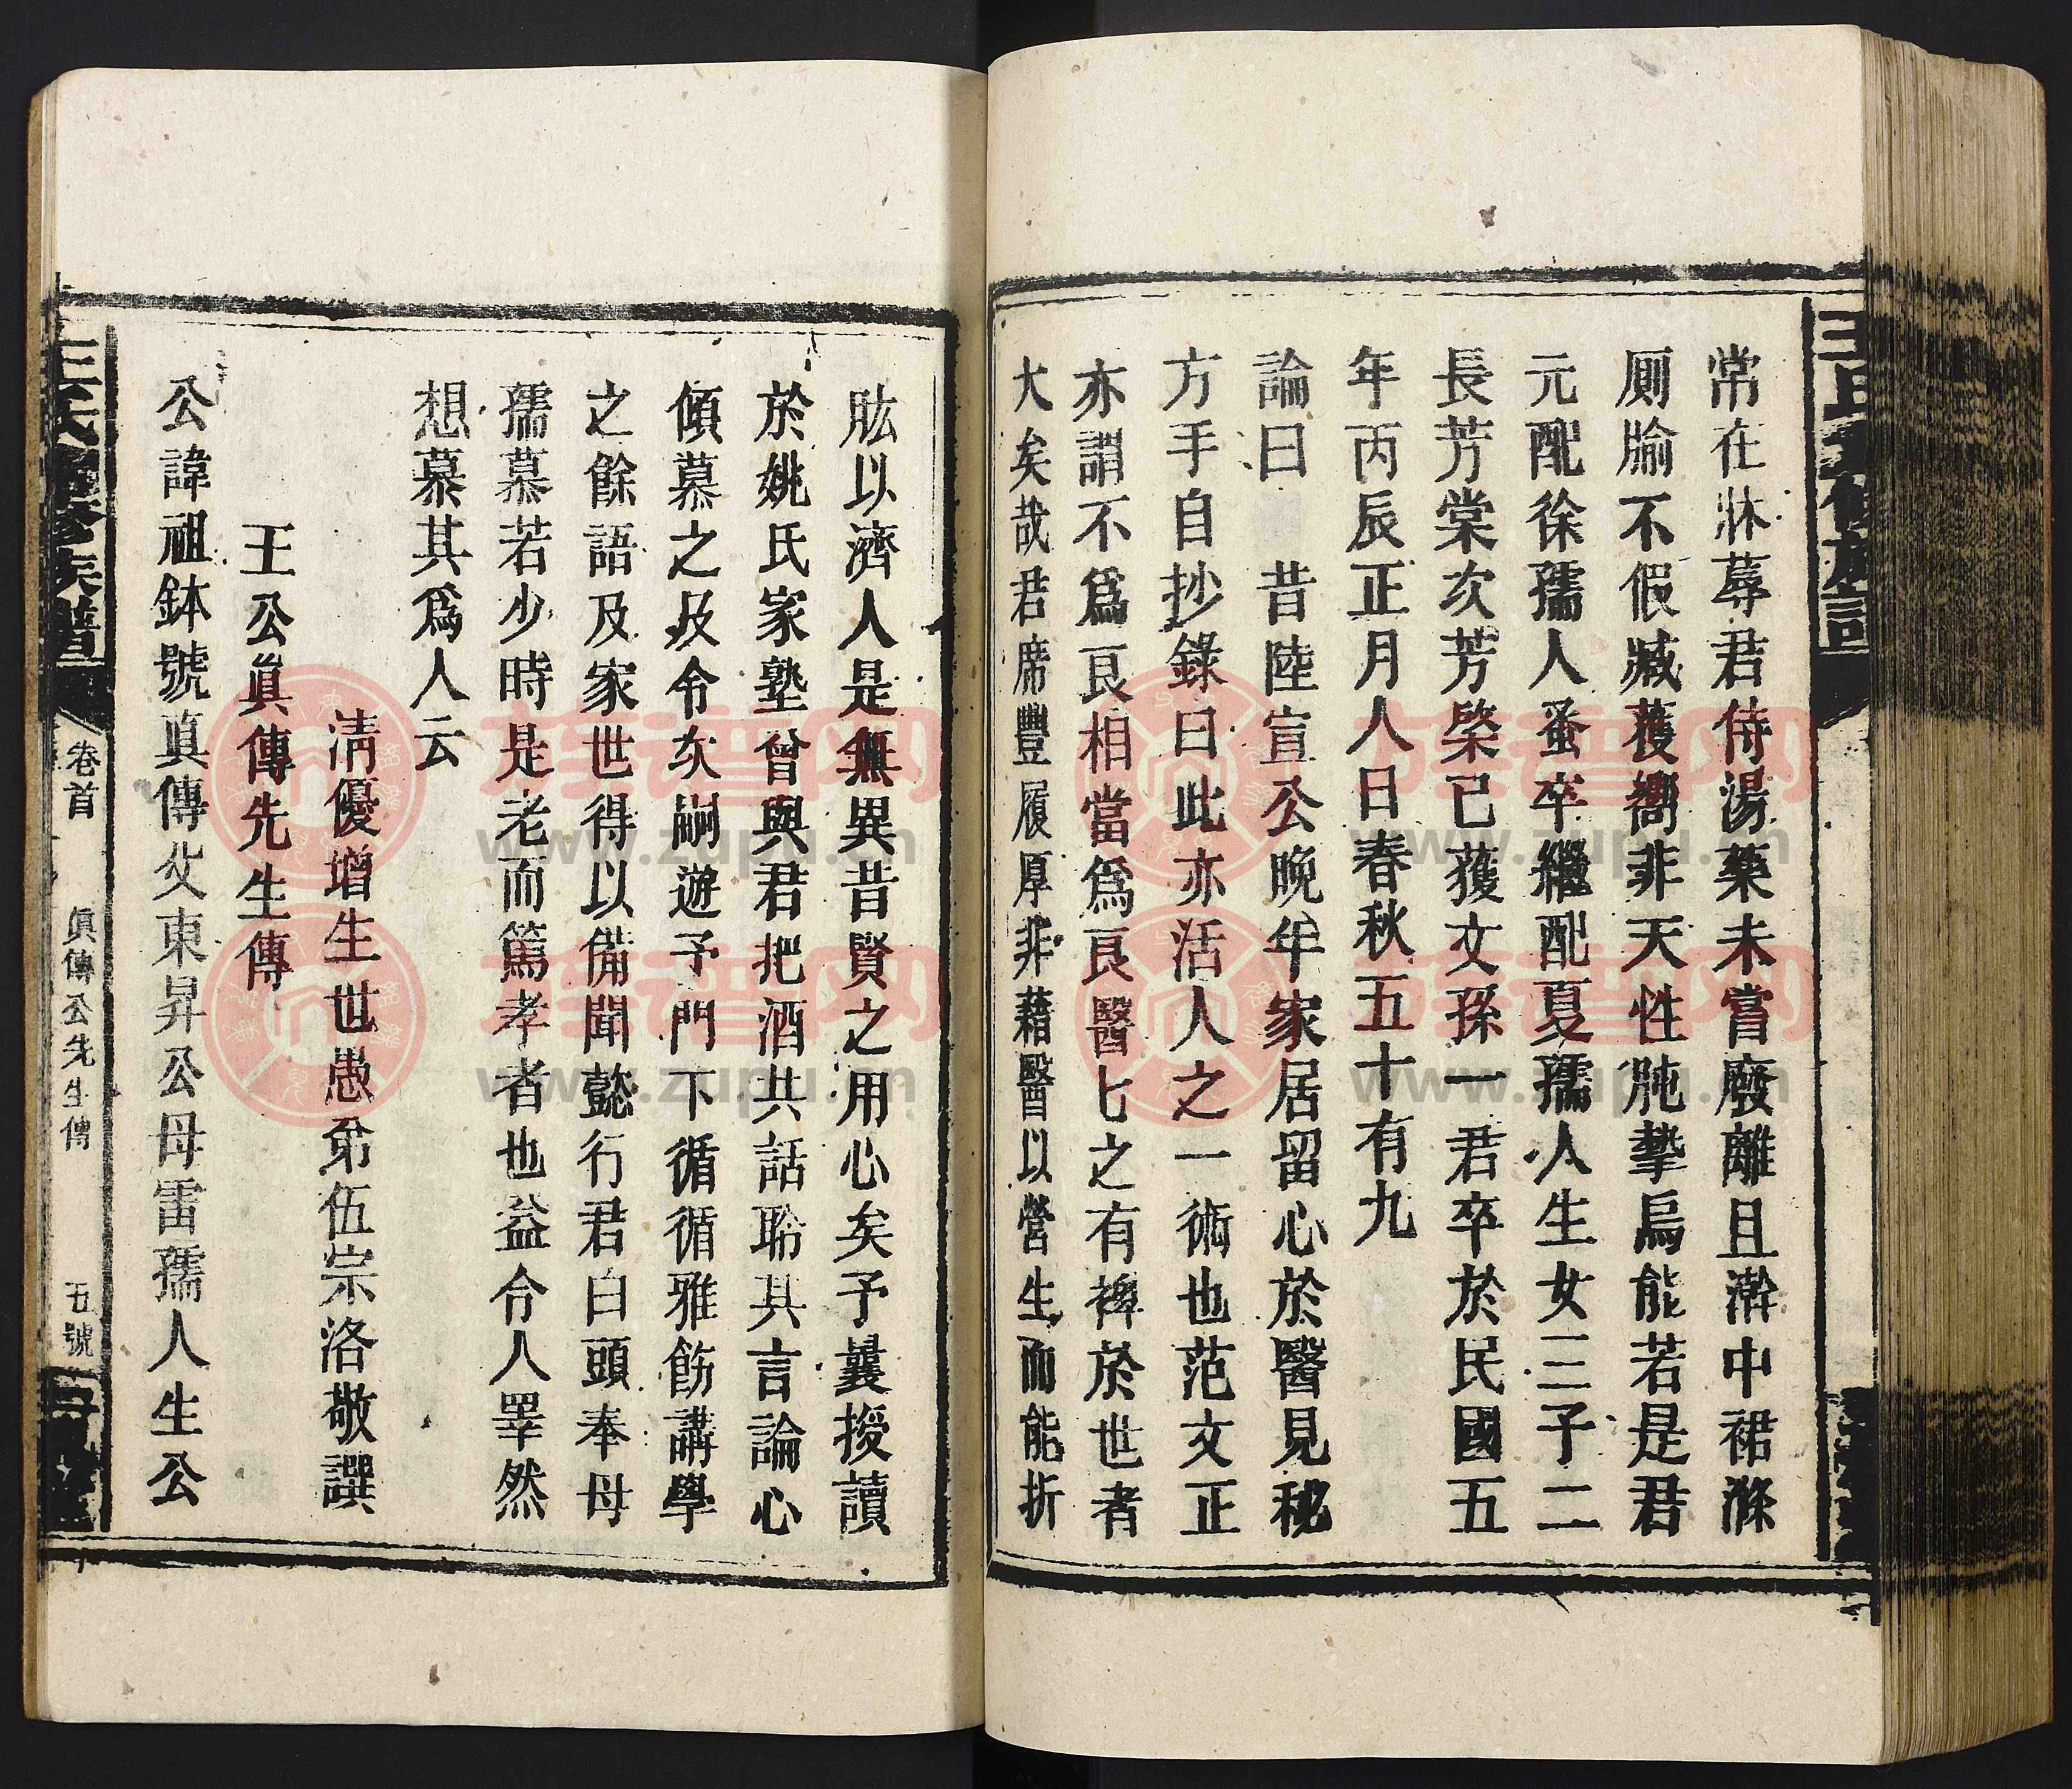 常在牀蓐君侍湯藥未嘗廢離且澣中裙滌
厠牏不假臧獲嚮非天性肫摯烏能若是君
元配徐孺人蚤卒繼配夏孺人生女三子二
長芳棠次芳榮已獲文孫一君卒於民國五
年丙辰正月人日春秋五十有九
論曰 昔陸宣公晚年家居留心於醫見秘
方手自抄錄曰此亦活人之一術也范文正
亦謂不爲良相當爲良醫七之有裨於世者
大矣哉君席豐履厚非藉醫以營生而能折
肱以濟人是無異昔賢之用心矣予曩授讀
於姚氏家塾曾與君把酒共話聆其言論心
傾慕之及令次嗣遊予門下循循雅飭講學
之餘語及家世得以備聞懿行君白頭奉母
孺慕若少時是老而篤孝者也益令人睪然
想慕其爲人云
清優增生世愚弟伍宗洛敬譔
王公眞傳先生傳
公諱祖鉢號眞傳父東昇公母雷孺人生公
王氏 修族譜
卷首
眞傳公先生傳
五號
族譜网
www.zupu.cn
族譜网
www.zupu.cn
族譜网
www.zupu.cn
族譜网
www.zupu.cn